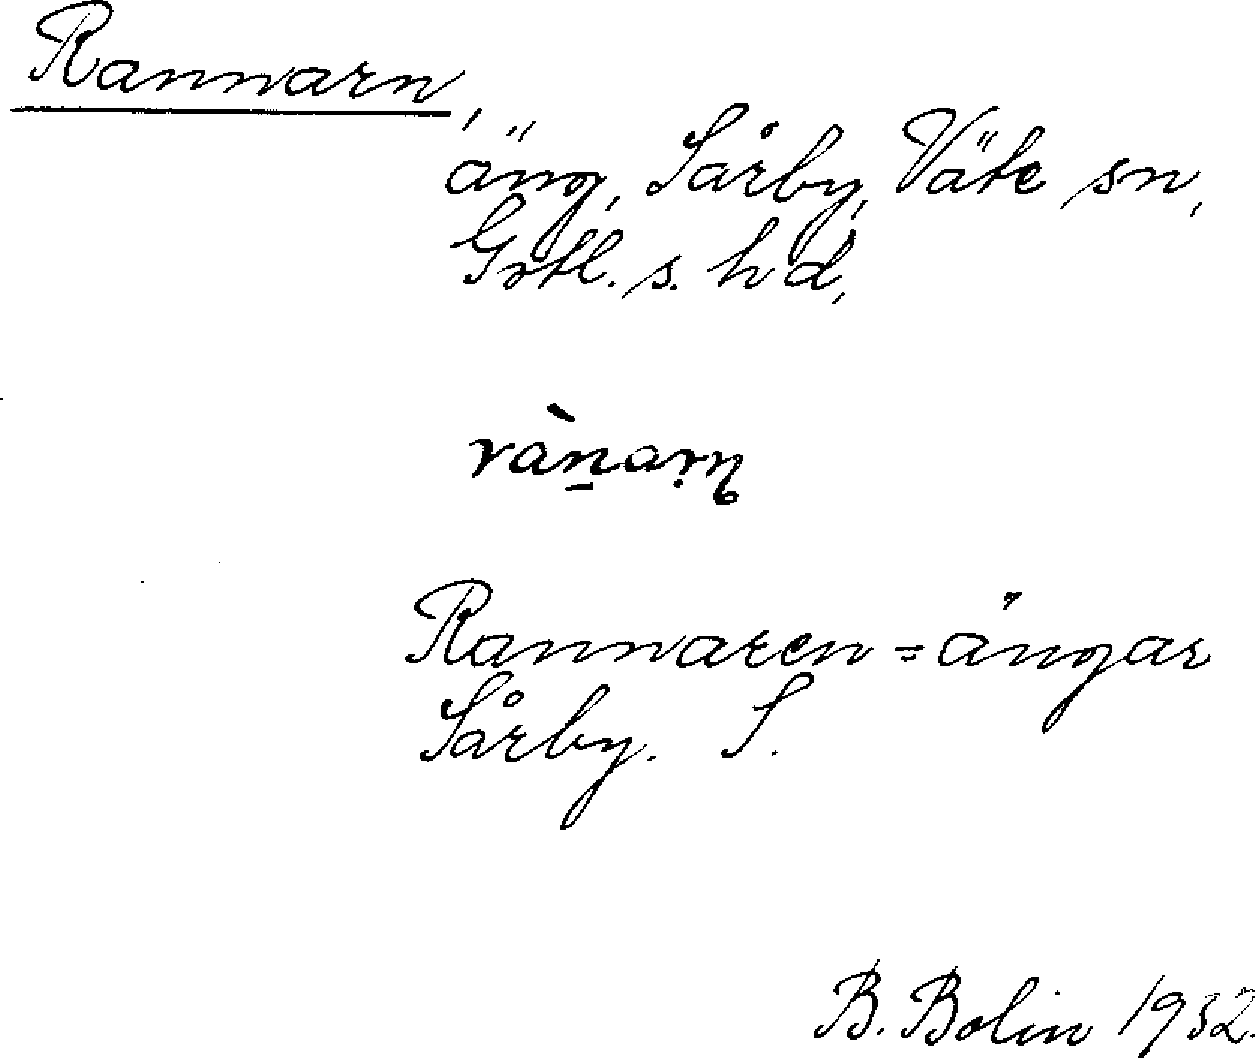 Rannarn,
äng, Sårby, Väte sn,
Gotl. s. hd,
ràn̲arṇ
Rannaren = ängar
Sårby. S.
B. Bolin 1932.